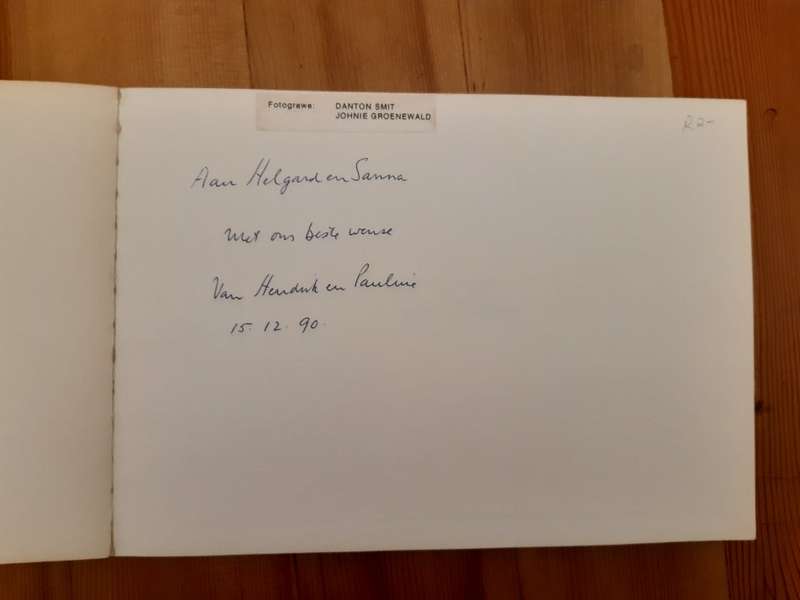 Fotograwe: DANTON SMIT
JOHNIE GROENEWALD
R2-
Aan Helgard en Sanna
Met ons beste wense
Van Hendrik en Pauline
15.12.90.